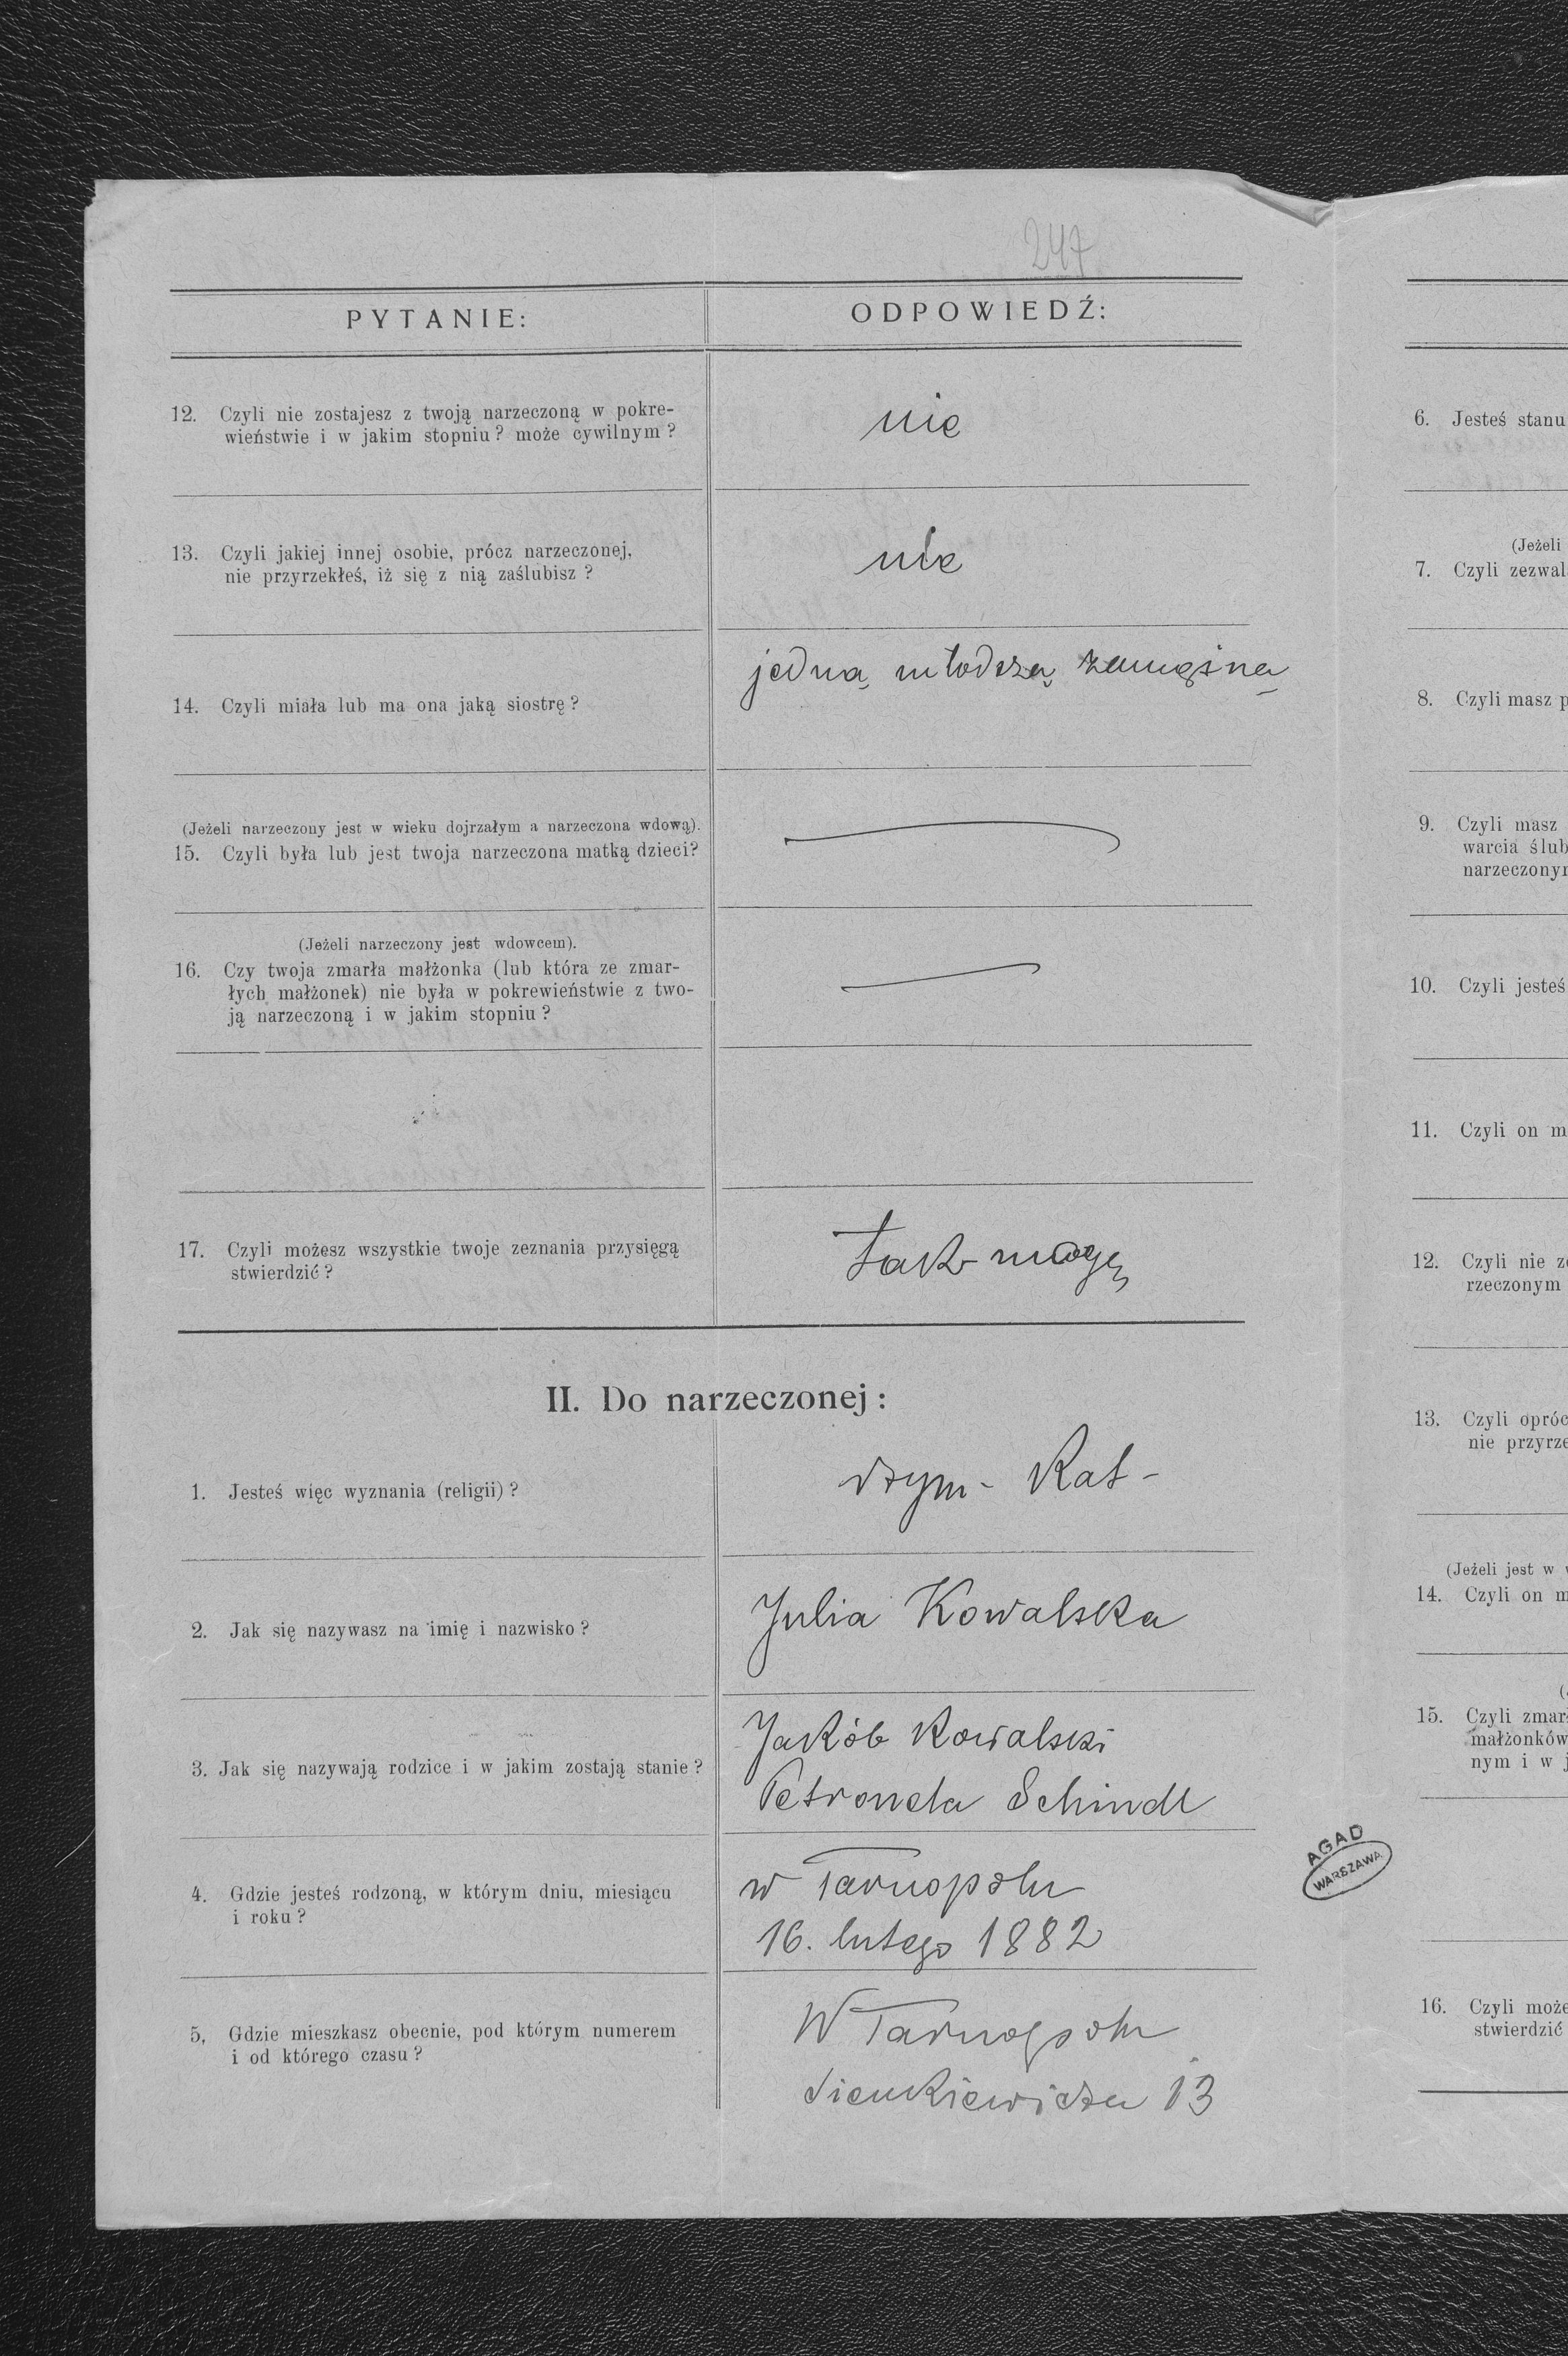 247
PYTANIE:
ODPOWIEDŹ:
12. Czyli nie zostajesz z twoją narzeczoną w pokre-
wieństwie i w jakim stopniu? może cywilnym?
nie
13. Czyli jakiej innej osobie, prócz narzeczonej,
nie przyrzekłeś, iż się z nią zaślubisz?
nie
14. Czyli miała lub ma ona jaką siostrę?
jedną młodszą zamężną
(Jeżeli narzeczony jest w wieku dojrzałym a narzeczona wdową).
15. Czyli była lub jest twoja narzeczona matką dzieci?
(Jeżeli narzeczony jest wdowcem).
16. Czy twoja zmarła małżonka (lub która ze zmar-
łych małżonek) nie była w pokrewieństwie z two-
ją narzeczoną i w jakim stopniu?
17. Czyli możesz wszystkie twoje zeznania przysięgą
stwierdzić?
tak mogę
II. Do narzeczonej:
1. Jesteś więc wyznania (religii)?
rzym- Kat-
2. Jak się nazywasz na imię i nazwisko?
Julia Kowalska
3. Jak się nazywają rodzice i w jakim zostają stanie?
Jakób Kowalski
Petronela Schindl
4. Gdzie jesteś rodzoną, w którym dniu, miesiącu
i roku?
w Tarnopolu
16. lutego 1882
5, Gdzie mieszkasz obecnie, pod którym numerem
i od którego czasu?
W Tarnopolu
Sienkiewicza 13
6. Jesteś stanu
(Jeżeli
7. Czyli zezwal
8. Czyli masz p
9. Czyli masz
warcia ślub
narzeczonyr
10. Czyli jesteś
11. Czyli on m
12. Czyli nie z
rzeczonym
13. Czyli opróc
nie przyrze
(Jeżeli jest w
14. Czyli on m
15. Czyli zmar
małżonków
nym i w j
AGAD
WARSZAWA
16. Czyli może
stwierdzić